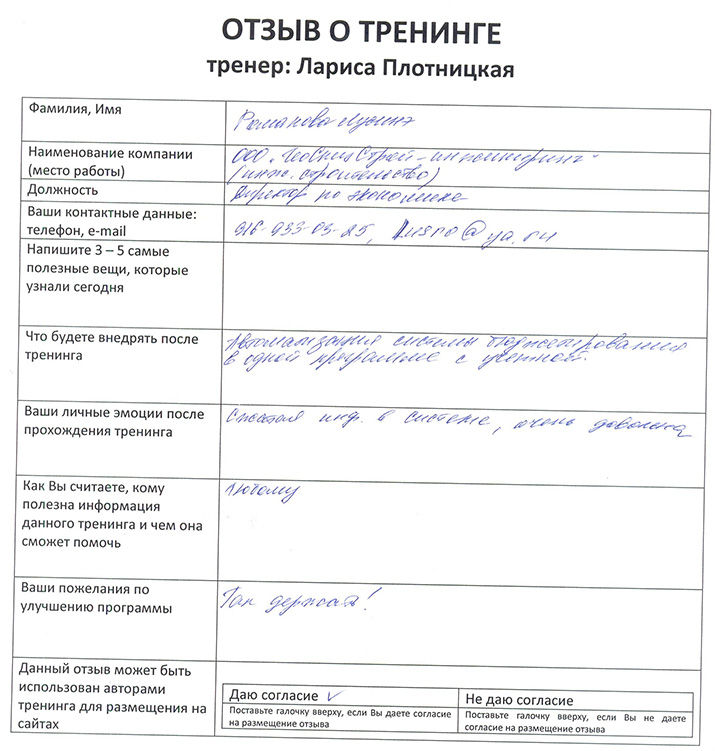 ОТЗЫВ О ТРЕНИНГЕ
тренер: Лариса Плотницкая
Фамилия, Имя
Романова Лусинэ
Наименование компании
(место работы)
ООО "ГеоСпецСтрой-инжиниринг"
(инж. строительство)
Должность
Директор по экономике
Ваши контактные данные:
телефон, e-mail
916-933-03-25, @ya.ru
Напишите 3 – 5 самые
полезные вещи, которые
узнали сегодня
Что будете внедрять после
тренинга
Автоматизация системы бюджетирования
в одной программе с учетной.
Ваши личные эмоции после
прохождения тренинга
инф. в системе, очень довольна
Как Вы считаете, кому
полезна информация
данного тренинга и чем она
сможет помочь
Любому
Ваши пожелания по
улучшению программы
Так держать!
Данный отзыв может быть
использован авторами
тренинга для размещения на
сайтах
Даю согласие ✓
Поставьте галочку вверху, если Вы даете согласие
на размещение отзыва
Не даю согласие
Поставьте галочку вверху, если Вы не даете
согласие на размещение отзыва